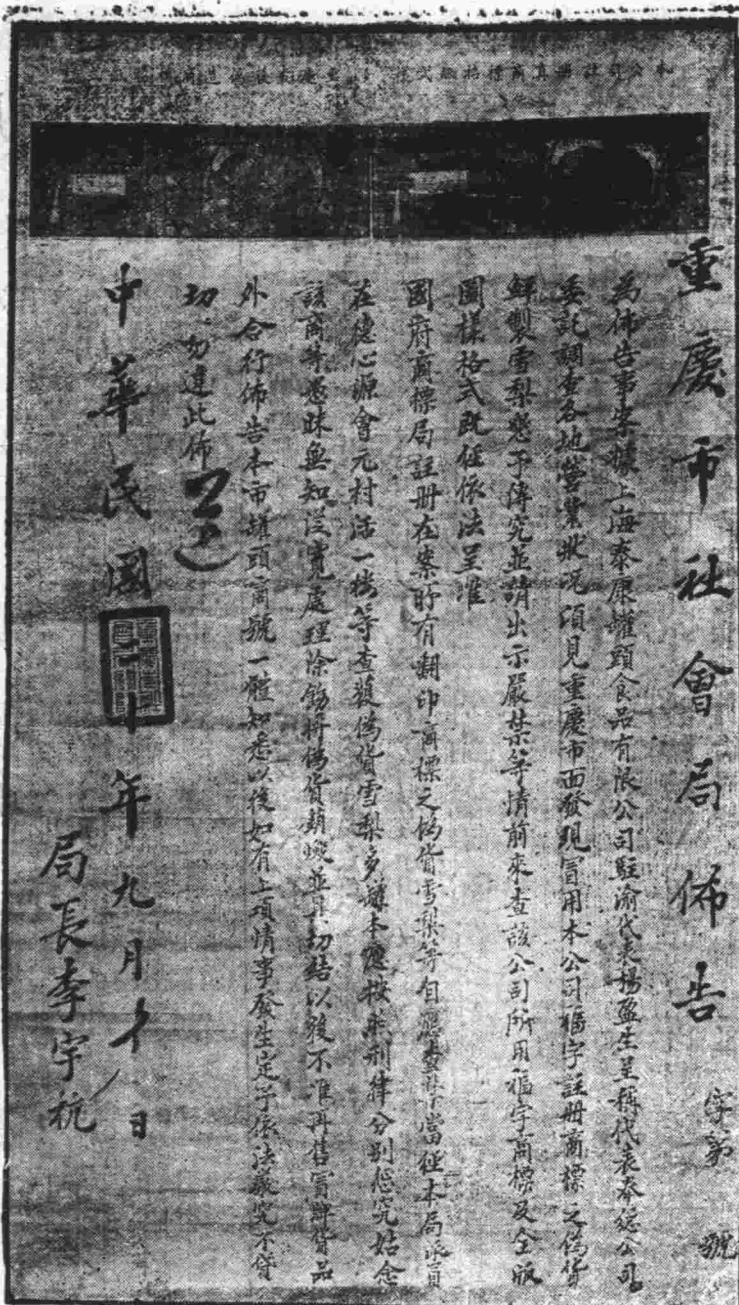 重慶市社會局佈告
字第　號
為佈告事案據上海泰康罐頭食品有限公司駐渝代表楊盈生呈稱代表奉總公司
委託調查各地營業狀況須見重慶市面發現冒用本公司福字註冊商標之偽貨
鮮製雪梨懇予傳究並請出示嚴禁等情前來查該公司所用福字商標及全版
圖樣格式既經依法呈准
國府商標局註冊在案時有翻印商標之偽貨雪梨等自應查禁當經本局派員
在德心源會元村活一楼等查獲偽貨雪梨多罐本應按照刑律分別懲究姑念
該商等愚昧無知從寬處理除飭將偽貨銷燬並具切結以後不准再售冒牌貨品
外合行佈告本市罐頭商號一體知悉以後如有上項情事發生定予依法嚴究不貸
切勿違此佈
中華民國二十年九月 日
局長李宇杭